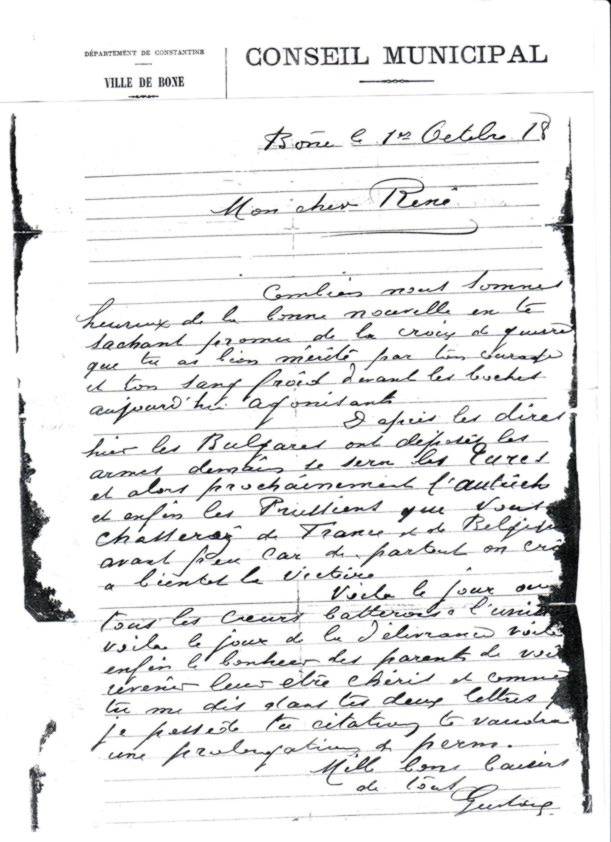 DÉPARTEMENT DE CONSTANTINE
VILLE DE BONE
CONSEIL MUNICIPAL
Bône le 1er Octobre 18
Mon cher René
Combien nous sommes
heureux de la bonne nouvelle en te
sachant promu de la croix de guerre
que tu as bien mérité par ton courage
et ton sang froid devant les boches
aujourd'hui agonisants
D'après les dires
hier les Bulgares ont déposés les
armes demain se sera les Turcs
et alors prochainement l'autrich
et enfin les Prussiens que vous
chasserez de France et de Belgique
avant peu car de partout on crie
a bientot la Victoire
Voila le jour ou
tous les cœurs batterons a l'unis
voila le jour de la délivrance voila
enfin le bonheur des parents de voir
revenir leur être chéris et comme
tu me dis dans tes deux lettres
je possède ta citation te vaudra
une prolongation de perm.
Mill bons baisers
de tous
Gustave